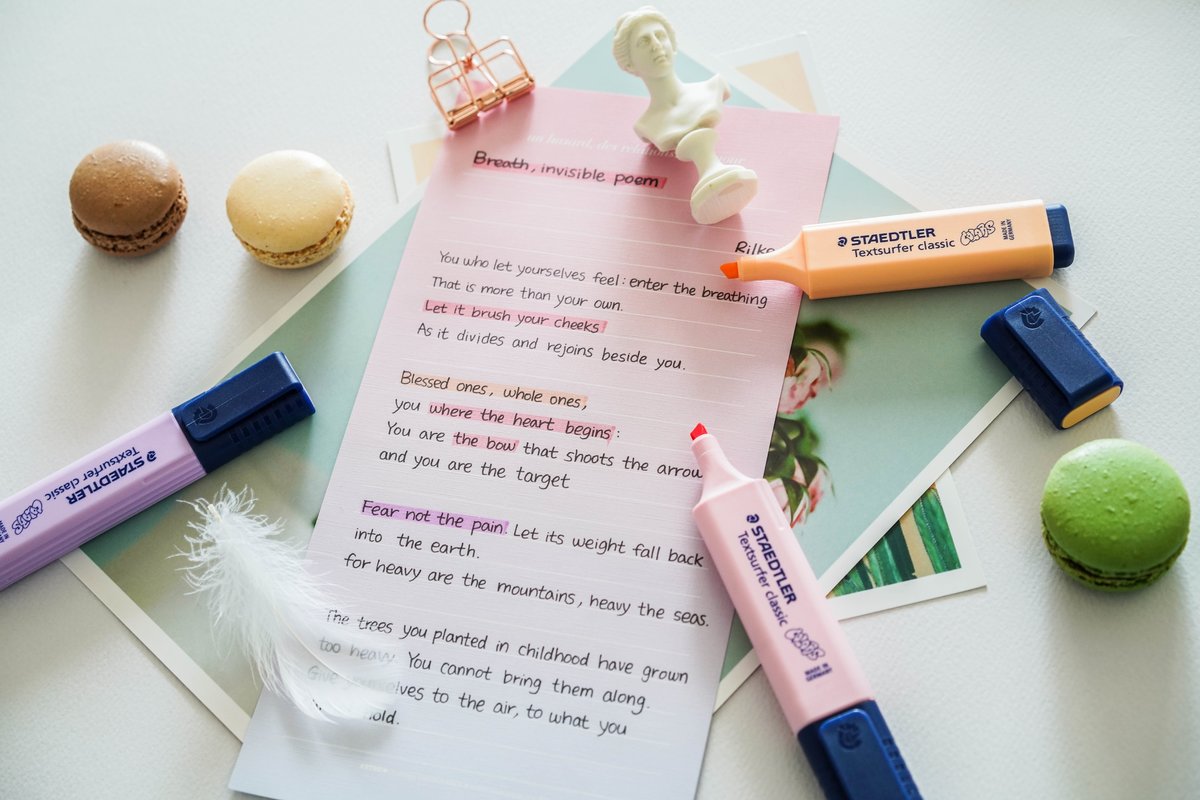 un hasard, des relations
Breath, invisible poem
Rilke
You who let yourselves feel: enter the breathing
That is more than your own.
Let it brush your cheeks
As it divides and rejoins beside you.
Blessed ones, whole ones,
you where the heart begins:
You are the bow that shoots the arrow
and you are the target
Fear not the pain. Let its weight fall back
into the earth.
for heavy are the mountains, heavy the seas.
The trees you planted in childhood have grown
too heavy. You cannot bring them along.
Give yourselves to the air, to what you
hold.
STAEDTLER
Textsurfer classic
MADE IN
GERMANY
STAEDTLER
Textsurfer classic
MADE IN
GERMANY
STAEDTLER
Textsurfer classic